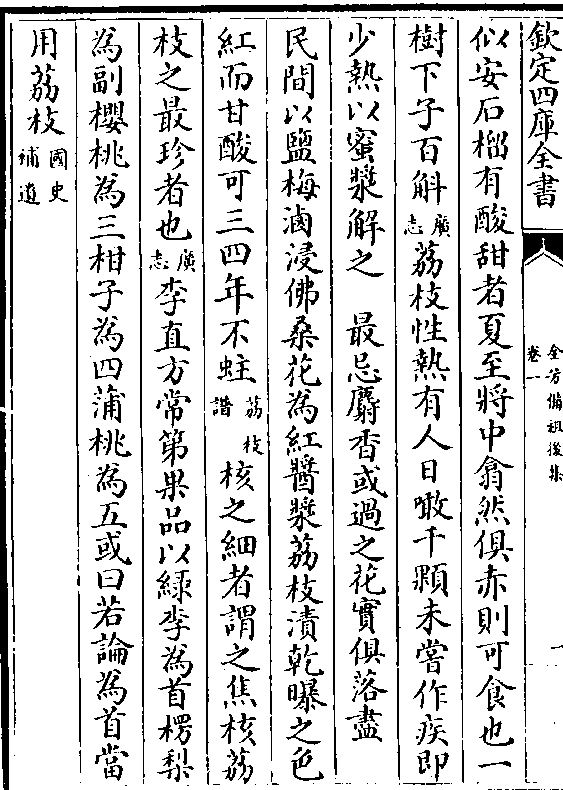 欽定四庫全書
全芳備祖後集
卷一
一
似安石榴有酸甜者夏至將中翕然俱赤則可食也一
樹下子百斛廣志荔枝性熱有人日噉千顆未嘗作疾即
少熱以蜜漿解之　最忌麝香或過之花實俱落盡
民間以鹽梅滷浸佛桑花為紅醬漿荔枝漬乾曝之色
紅而甘酸可三四年不蛀荔枝譜核之細者謂之焦核荔
枝之最珍者也廣志李直方常第果品以緑李為首楞梨
為副櫻桃為三柑子為四蒲桃為五或曰若論為首當
用荔枝國史補遺